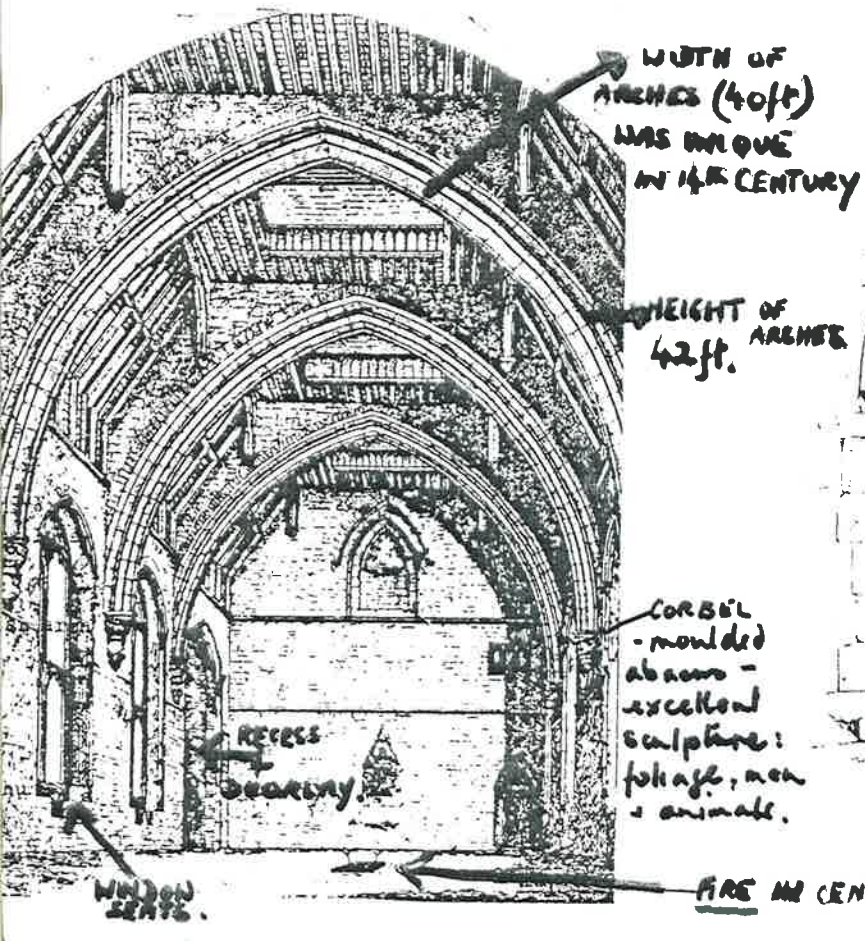 WIDTH OF
ARCHES (40ft)
WAS UNIQUE
IN 14th CENTURY
HEIGHT OF
ARCHES
42ft.
CORBEL
- moulded
abacus -
excellent
sculpture:
foliage, men
+ animals.
RECESS
DOORWAY.
WINDOW
SEATS.
FIRE IN CEN